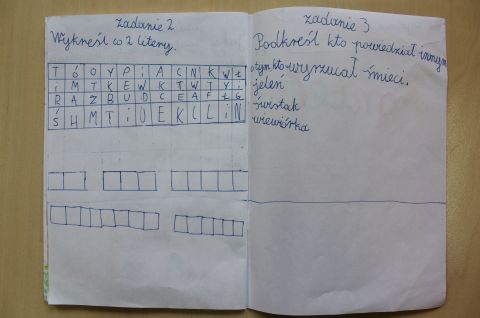 zadanie 2
Wykreśl co 2 litery.
T Ó O Y P i A C N K W Ł
i M T K E W K T W T Y i
R A Z B U D C E A F Ł G
Ś H M T i U E K C L i N
zadanie 3
Podkreśl kto powiedział innym
o tym, kto wyrzucał śmieci.
jeleń
świstak
wiewiórka